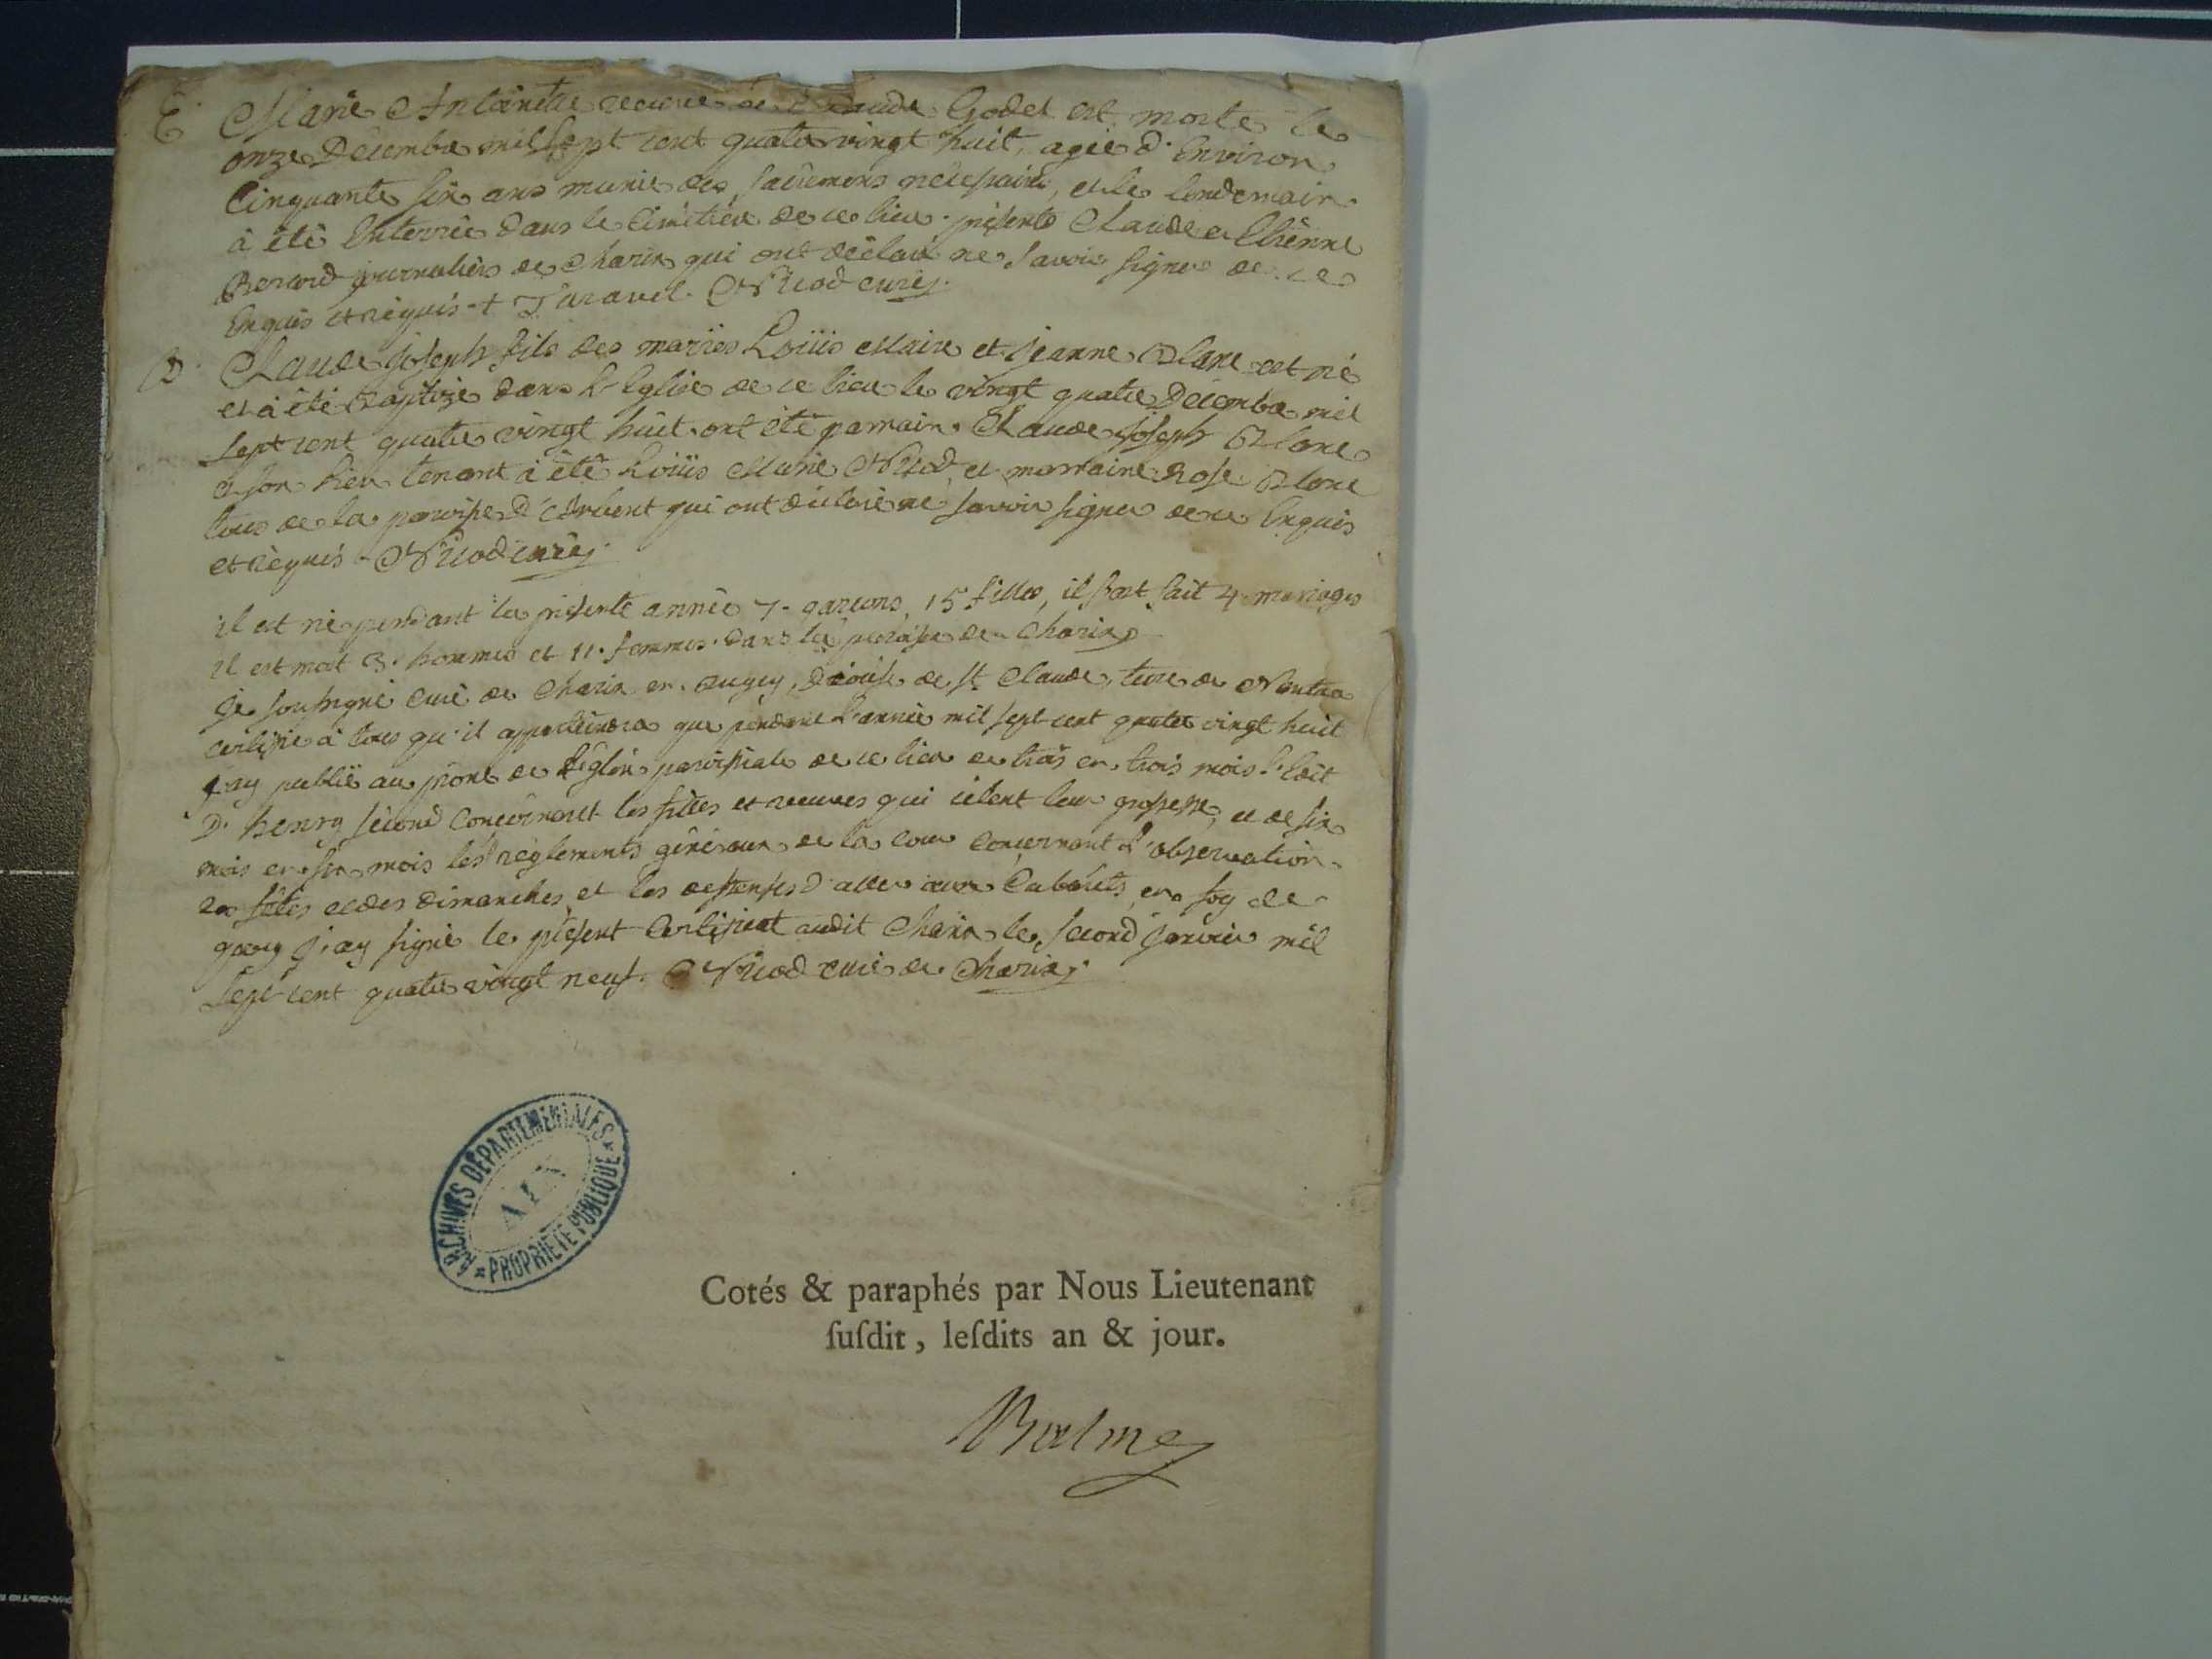 E. Marie Antoinette veuve de Claude Godet est morte le
onze Décembre mil sept cent quatre vingt huit, agée d'Environ
Cinquante six ans munie des sacremens necessaires, et le lendemain
à été Enterrée dans le Cimétiére de ce lieu. présents Claude et Etiênne
Berard journaliers de Charix qui ont déclaré ne savoir signer de ce
Enquis et réquis. + Taravel. curé.
B. Claude joseph fils des mariés Loüis Maire et jeanne Blanc est né
et à été Baptizé dans L'Eglise de ce lieu le vingt quatre Décembre mil
sept cent quatre vingt huit. ont été parrain Claude joseph Blanc
à son lieu tenant à été Loüis Marie Nicod, et marraine Rose Blanc
tous de la paroisse D'Arbent qui ont déclaré ne savoir signer de ce Enquis
et réquis. Nicod curé.
il est né pendant la présente année 7. garcons, 15 filles, il s'est fait 4. mariages
il est mort 3. hommes et 11. femmes. dans la paroisse de Charix
Je soussigné curé de Charix en Bugey, Diocese de St. Claude, terre de Nantua
certifie à tous qu'il appartiendra que pendant L'année mil sept cent quatre vingt huit
j'ay publié au prone de L'église paroissiale de ce lieu de trois en trois mois L'Edit
D'henry sécond Concernant les filles et veuves qui célent leur grossesse, et de six
mois en six mois les réglements généraux de la cour Concernant L'observation
des fétes et des dimanches, et les deffenses d'aller aux Cabarets, en foy de
quoy j'ay signé le présent Certificat audit Charix le second janvier mil
sept cent quatre vingt neuf. Nicod curé de Charix.
ARCHIVES DÉPARTEMENTALES
AIN
PROPRIÉTÉ PUBLIQUE
Cotés & paraphés par Nous Lieutenant
ſuſdit, leſdits an & jour.
Balme